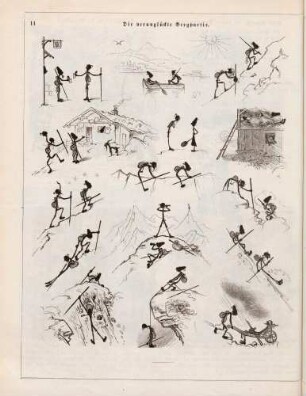 11
Die verunglückte Bergpartie.